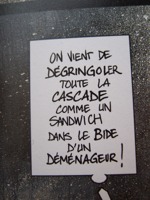 ON VIENT DE
DÉGRINGOLER
TOUTE LA
CASCADE
COMME UN
SANDWICH
DANS LE BIDE
D'UN
DÉMÉNAGEUR!